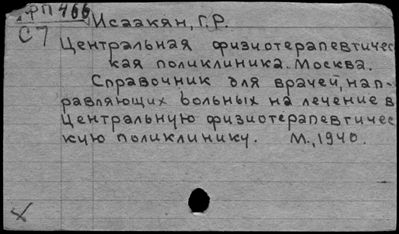 РП 466
С7
Исаакян, Г.Р.
Центральная физиотерапевтичес-
кая поликлиника. Москва.
Справочник для врачей, нап-
равляющих больных на лечение в
Центральную физиотерапевтичес-
кую поликлинику. М., 1940.